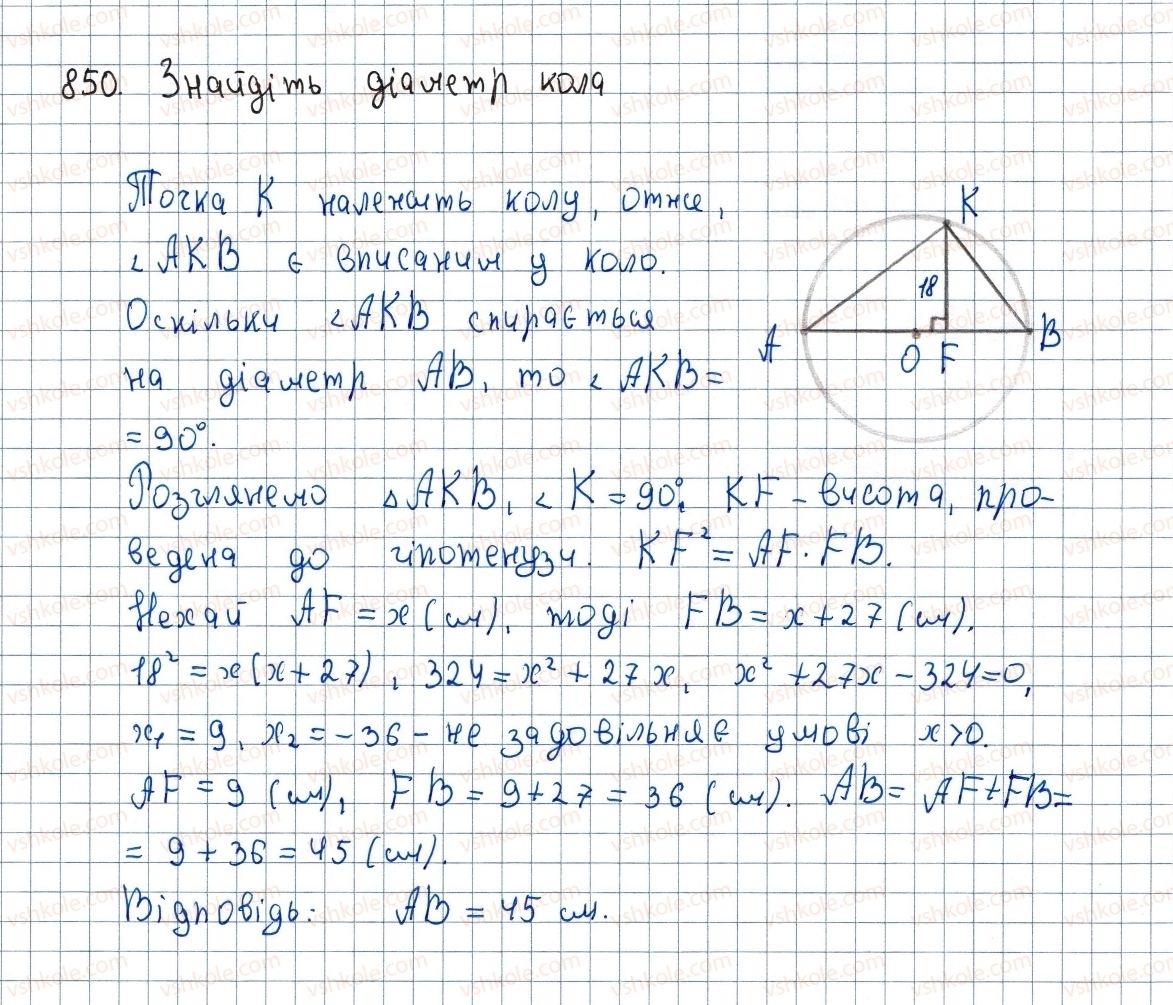 850. Знайдіть діаметр кола
Точка K належить колу, отже,
∠AKB є вписаним у коло.
Оскільки ∠AKB спирається
на діаметр AB, то ∠AKB =
= 90°.
K
18
A
O
F
B
Розглянемо △AKB, ∠K = 90°, KF – висота, про-
ведена до гіпотенузи. KF² = AF · FB.
Нехай AF = x (см), тоді FB = x + 27 (см).
18² = x(x + 27), 324 = x² + 27x, x² + 27x – 324 = 0,
x₁ = 9, x₂ = –36 – не задовільняє умові x > 0.
AF = 9 (см), FB = 9 + 27 = 36 (см). AB = AF + FB =
= 9 + 36 = 45 (см).
Відповідь: AB = 45 см.
vshkole.com